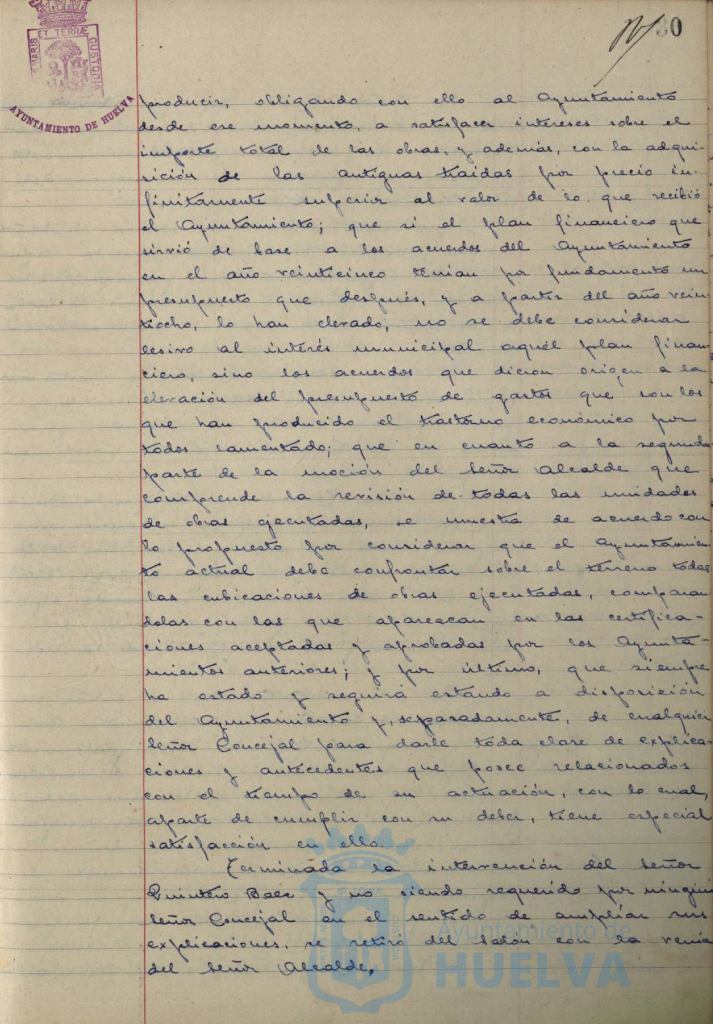 30
PORTUS MARIS ET TERRÆ CUSTODIA
AYUNTAMIENTO DE HUELVA
producir, obligando con ello al Ayuntamiento
desde ese momento, a satisfacer intereses sobre el
importe total de las obras, y además, con la adqui-
sición de las antiguas traidas por precio in-
finitamente superior al valor de lo que recibió
el Ayuntamiento; que si el plan financiero que
sirvió de base a los acuerdos del Ayuntamiento
en el año veinticinco tenian por fundamento un
presupuesto que después, y a partir del año vein-
tiocho, lo han elevado, no se debe considerar
lesivo al interés municipal aquél plan finan-
ciero, sino los acuerdos que dieron origen a la
elevación del presupuesto de gastos que son los
que han producido el trastorno económico por
todos lamentado; que en cuanto a la segunda
parte de la moción del Señor Alcalde que
comprende la revisión de todas las unidades
de obras ejecutadas, se muestra de acuerdo con
lo propuesto por considerar que el Ayuntamien-
to actual debe confrontar sobre el terreno todas
las cubicaciones de obras ejecutadas, comparan
dolas con las que aparezcan en las certifica-
ciones aceptadas y aprobadas por los Ayunta-
mientos anteriores; y por último, que siempre
ha estado y seguirá estando a disposición
del Ayuntamiento y, separadamente, de cualquier
Señor Concejal para darle toda clase de explica-
ciones y antecedentes que posee relacionados
con el tiempo de su actuación, con lo cual,
aparte de cumplir con su deber, tiene especial
satisfacción en ello.
Terminada la intervención del Señor
Quintero Baez y no siendo requerido por ningún
Señor Concejal en el sentido de amplíar sus
explicaciones, se retiró del salón con la venia
del Señor Alcalde.
Ayuntamiento de
HUELVA